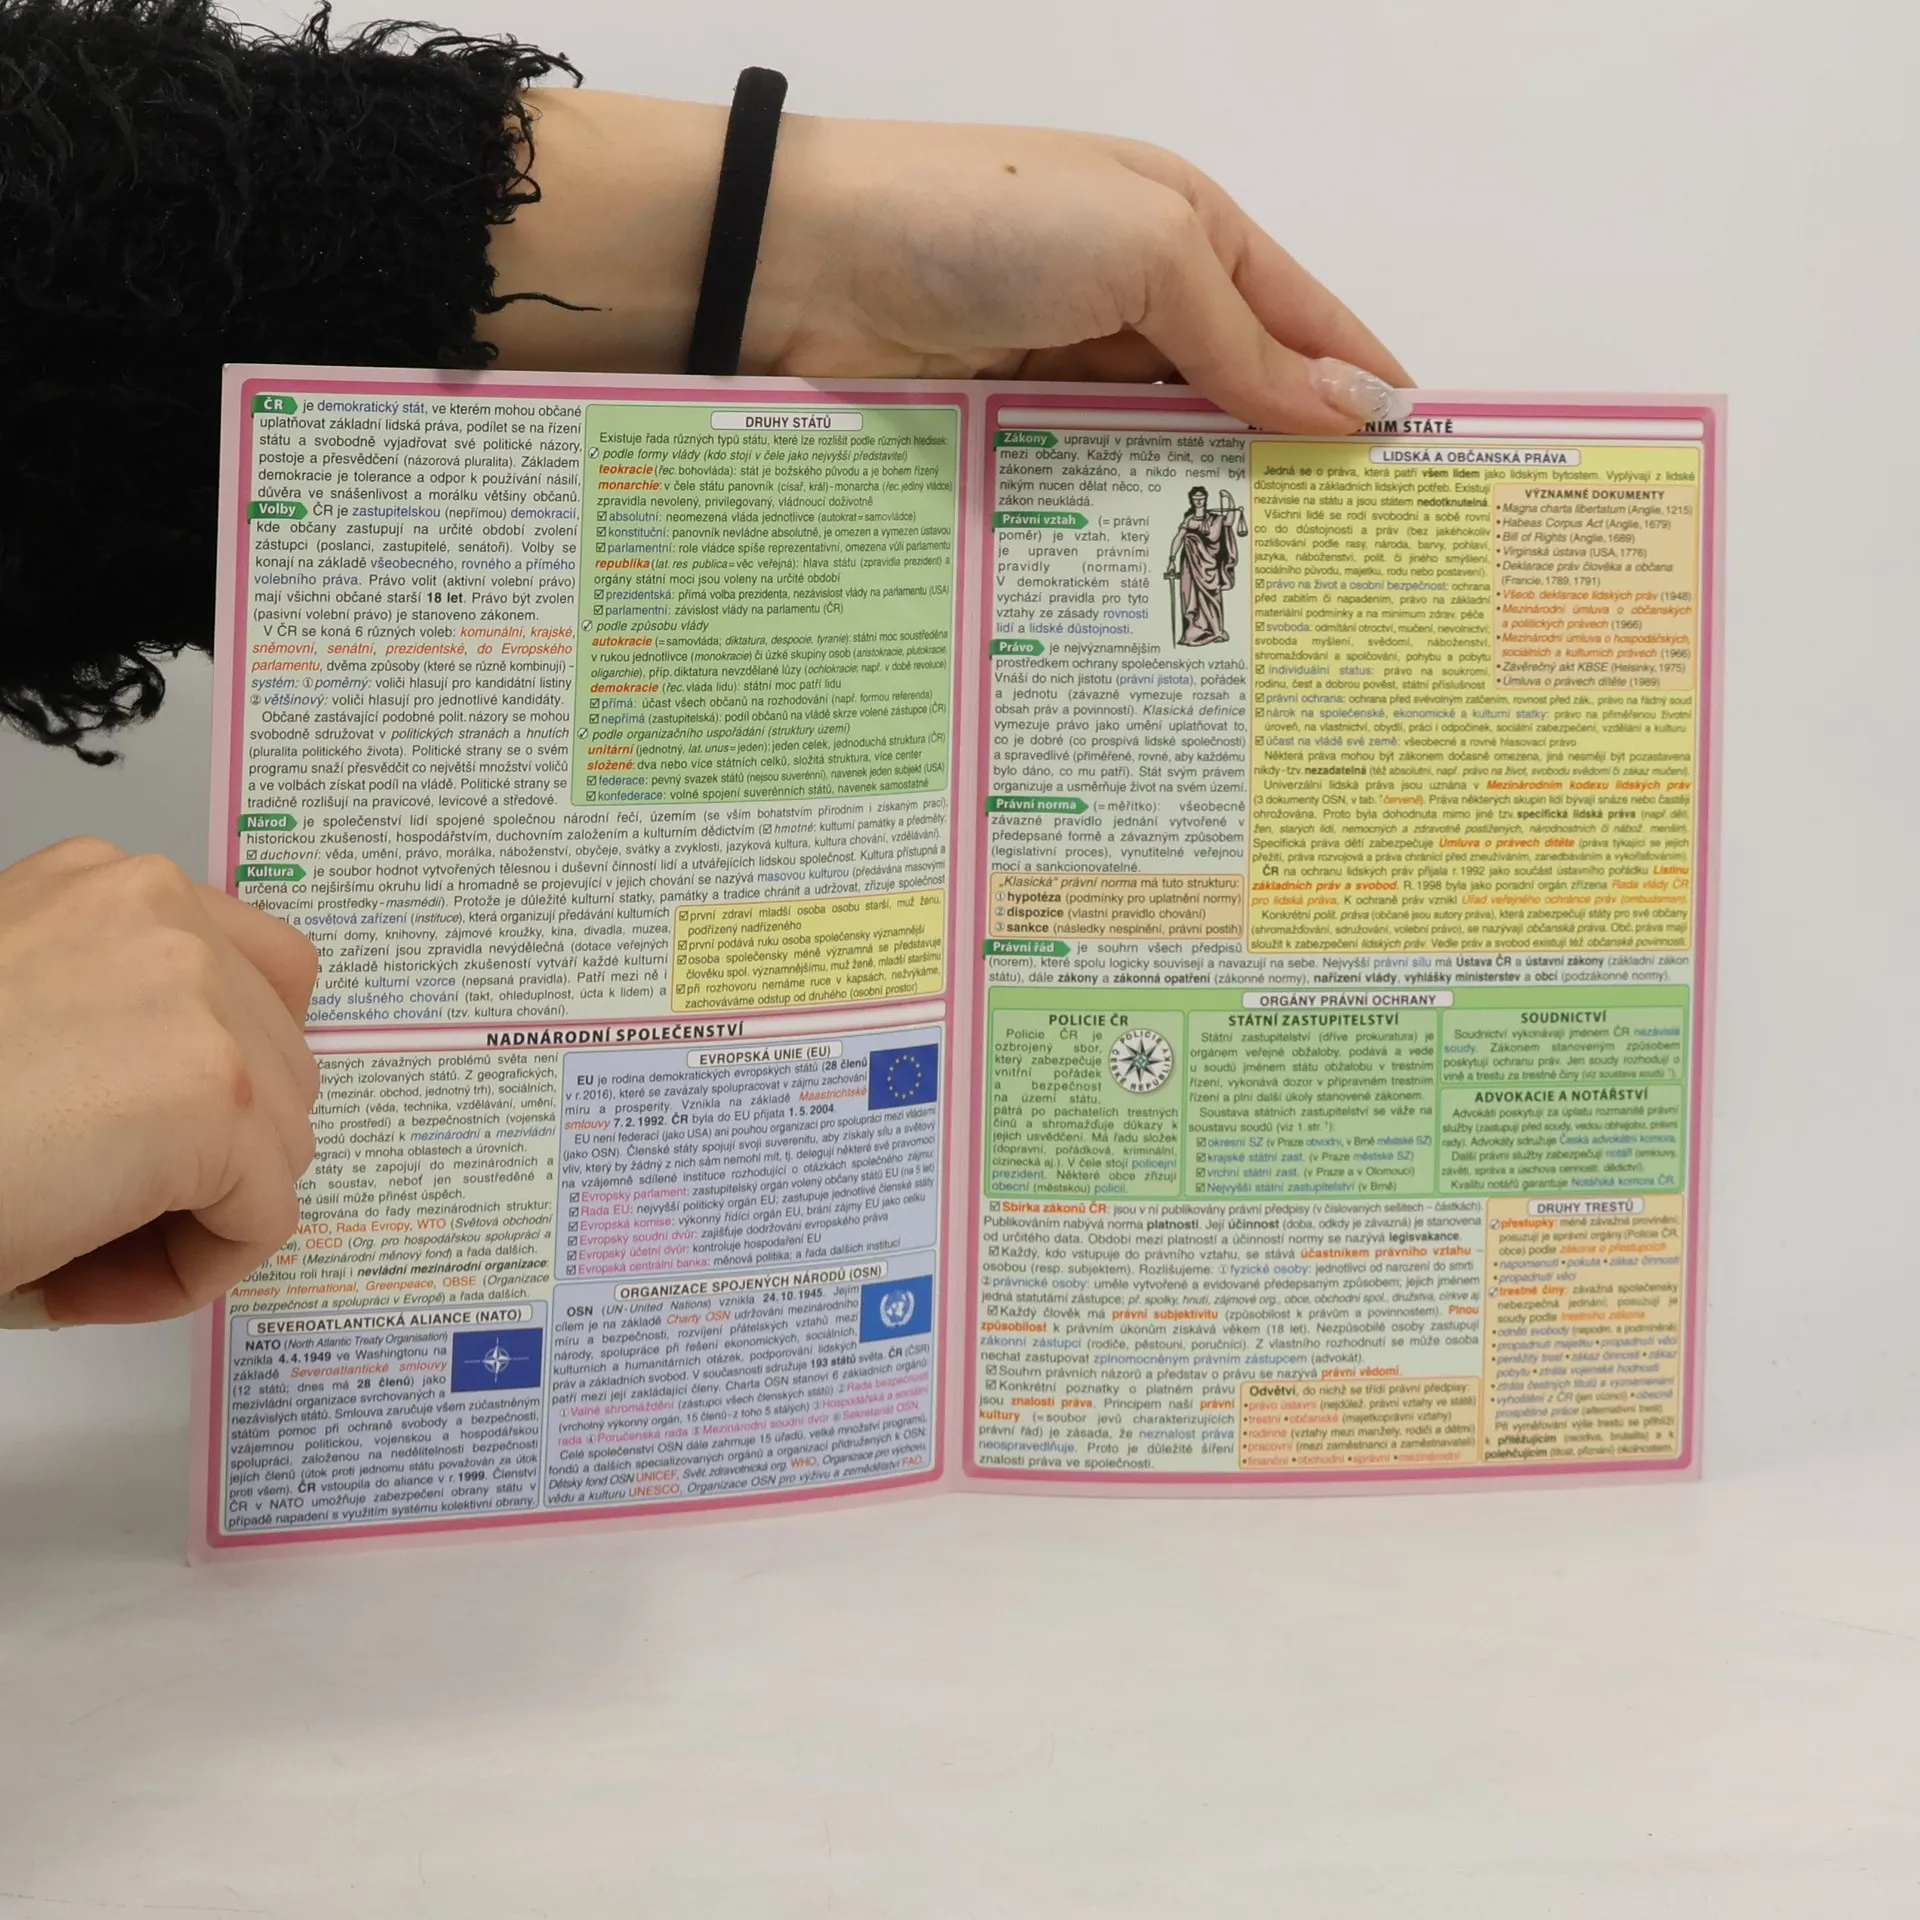 ČR je demokratický stát, ve kterém mohou občané
uplatňovat základní lidská práva, podílet se na řízení
státu a svobodně vyjadřovat své politické názory,
postoje a přesvědčení (názorová pluralita). Základem
demokracie je tolerance a odpor k používání násilí,
důvěra ve snášenlivost a morálku většiny občanů.
Volby ČR je zastupitelskou (nepřímou) demokracií,
kde občany zastupují na určité období zvolení
zástupci (poslanci, zastupitelé, senátoři). Volby se
konají na základě všeobecného, rovného a přímého
volebního práva. Právo volit (aktivní volební právo)
mají všichni občané starší 18 let. Právo být zvolen
(pasivní volební právo) je stanoveno zákonem.
V ČR se koná 6 různých voleb: komunální, krajské,
sněmovní, senátní, prezidentské, do Evropského
parlamentu, dvěma způsoby (které se různě kombinují) -
systém: ① poměrný: voliči hlasují pro kandidátní listiny
② většinový: voliči hlasují pro jednotlivé kandidáty.
Občané zastávající podobné polit. názory se mohou
svobodně sdružovat v politických stranách a hnutích
(pluralita politického života). Politické strany se o svém
programu snaží přesvědčit co největší množství voličů
a ve volbách získat podíl na vládě. Politické strany se
tradičně rozlišují na pravicové, levicové a středové.
DRUHY STÁTŮ
Existuje řada různých typů státu, které lze rozlišit podle různých hledisek:
podle formy vlády (kdo stojí v čele jako nejvyšší představitel)
teokracie (řec. bohovláda): stát je božského původu a je bohem řízený
monarchie: v čele státu panovník (císař, král) - monarcha (řec. jediný vládce)
zpravidla nevolený, privilegovaný, vládnoucí doživotně
☑ absolutní: neomezená vláda jednotlivce (autokrat=samovládce)
☑ konstituční: panovník nevládne absolutně, je omezen a vymezen ústavou
☑ parlamentní: role vládce spíše reprezentativní, omezena vůlí parlamentu
republika (lat. res publica=věc veřejná): hlava státu (zpravidla prezident) a
orgány státní moci jsou voleny na určité období
☑ prezidentská: přímá volba prezidenta, nezávislost vlády na parlamentu (USA)
☑ parlamentní: závislost vlády na parlamentu (ČR)
podle způsobu vlády
autokracie (=samovláda; diktatura, despocie, tyranie): státní moc soustředěna
v rukou jednotlivce (monokracie) či úzké skupiny osob (aristokracie, plutokracie,
oligarchie), příp. diktatura nevzdělané lůzy (ochlokracie; např. v době revoluce)
demokracie (řec. vláda lidu): státní moc patří lidu
☑ přímá: účast všech občanů na rozhodování (např. formou referenda)
☑ nepřímá (zastupitelská): podíl občanů na vládě skrze volené zástupce (ČR)
podle organizačního uspořádání (struktury území)
unitární (jednotný, lat. unus=jeden): jeden celek, jednoduchá struktura (ČR)
složené: dva nebo více státních celků, složitá struktura, více center
☑ federace: pevný svazek států (nejsou suverénní), navenek jeden subjekt (USA)
☑ konfederace: volné spojení suverénních států, navenek samostatné
Národ je společenství lidí spojené společnou národní řečí, územím (se vším bohatstvím přírodním i získaným prací),
historickou zkušeností, hospodářstvím, duchovním založením a kulturním dědictvím (☑ hmotné: kulturní památky a předměty;
☑ duchovní: věda, umění, právo, morálka, náboženství, obyčeje, svátky a zvyklosti, jazyková kultura, kultura chování, vzdělávání).
Kultura je soubor hodnot vytvořených tělesnou i duševní činností lidí a utvářejících lidskou společnost. Kultura přístupná a
určená co nejširšímu okruhu lidí a hromadně se projevující v jejich chování se nazývá masovou kulturou (předávána masovými
sdělovacími prostředky-masmédii). Protože je důležité kulturní statky, památky a tradice chránit a udržovat, zřizuje společnost
a osvětová zařízení (instituce), která organizují předávání kulturních
domy, knihovny, zájmové kroužky, kina, divadla, muzea,
zařízení jsou zpravidla nevýdělečná (dotace veřejných
základě historických zkušeností vytváří každé kulturní
určité kulturní vzorce (nepsaná pravidla). Patří mezi ně i
slušného chování (takt, ohleduplnost, úcta k lidem) a
společenského chování (tzv. kultura chování).
☑ první zdraví mladší osoba osobu starší, muž ženu,
podřízený nadřízeného
☑ první podává ruku osoba společensky významnější
☑ osoba společensky méně významná se představuje
člověku spol. významnějšímu, muž ženě, mladší staršímu
☑ při rozhovoru nemáme ruce v kapsách, nežvýkáme,
zachováváme odstup od druhého (osobní prostor)
NADNÁRODNÍ SPOLEČENSTVÍ
závažných problémů světa není
izolovaných států. Z geografických,
(mezinár. obchod, jednotný trh), sociálních,
(věda, technika, vzdělávání, umění,
prostředí) a bezpečnostních (vojenská
dochází k mezinárodní a mezivládní
v mnoha oblastech a úrovních.
státy se zapojují do mezinárodních a
soustav, neboť jen soustředěné a
úsilí může přinést úspěch.
do řady mezinárodních struktur:
NATO, Rada Evropy, WTO (Světová obchodní
OECD (Org. pro hospodářskou spolupráci a
IMF (Mezinárodní měnový fond) a řada dalších.
Důležitou roli hrají i nevládní mezinárodní organizace:
Amnesty International, Greenpeace, OBSE (Organizace
pro bezpečnost a spolupráci v Evropě) a řada dalších.
SEVEROATLANTICKÁ ALIANCE (NATO)
NATO (North Atlantic Treaty Organisation)
vznikla 4. 4. 1949 ve Washingtonu na
základě Severoatlantické smlouvy
(12 států; dnes má 28 členů) jako
mezivládní organizace svrchovaných a
nezávislých států. Smlouva zaručuje všem zúčastněným
státům pomoc při ochraně svobody a bezpečnosti,
vzájemnou politickou, vojenskou a hospodářskou
spolupráci, založenou na nedělitelnosti bezpečnosti
jejich členů (útok proti jednomu státu považován za útok
proti všem). ČR vstoupila do aliance v r. 1999. Členství
ČR v NATO umožňuje zabezpečení obrany státu v
případě napadení s využitím systému kolektivní obrany.
EVROPSKÁ UNIE (EU)
EU je rodina demokratických evropských států (28 členů
v r. 2016), které se zavázaly spolupracovat v zájmu zachování
míru a prosperity. Vznikla na základě Maastrichtské
smlouvy 7. 2. 1992. ČR byla do EU přijata 1. 5. 2004.
EU není federací (jako USA) ani pouhou organizací pro spolupráci mezi vládami
(jako OSN). Členské státy spojují svoji suverenitu, aby získaly sílu a světový
vliv, který by žádný z nich sám nemohl mít, tj. delegují některé své pravomoci
na vzájemně sdílené instituce rozhodující o otázkách společného zájmu:
☑ Evropský parlament: zastupitelský orgán volený občany států EU (na 5 let)
☑ Rada EU: nejvyšší politický orgán EU; zastupuje jednotlivé členské státy
☑ Evropská komise: výkonný řídící orgán EU, brání zájmy EU jako celku
☑ Evropský soudní dvůr: zajišťuje dodržování evropského práva
☑ Evropský účetní dvůr: kontroluje hospodaření EU
☑ Evropská centrální banka: měnová politika; a řada dalších institucí
ORGANIZACE SPOJENÝCH NÁRODŮ (OSN)
OSN (UN - United Nations) vznikla 24. 10. 1945. Jejím
cílem je na základě Charty OSN udržování mezinárodního
míru a bezpečnosti, rozvíjení přátelských vztahů mezi
národy, spolupráce při řešení ekonomických, sociálních,
kulturních a humanitárních otázek, podporování lidských
práv a základních svobod. V současnosti sdružuje 193 států světa. ČR (ČSR)
patří mezi její zakládající členy. Charta OSN stanoví 6 základních orgánů:
① Valné shromáždění (zástupci všech členských států) ② Rada bezpečnosti
(vrcholný výkonný orgán, 15 členů - z toho 5 stálých) ③ Hospodářská a sociální
rada ④ Poručenská rada ⑤ Mezinárodní soudní dvůr ⑥ Sekretariát OSN.
Celé společenství OSN dále zahrnuje 15 úřadů, velké množství programů,
fondů a dalších specializovaných orgánů a organizací přidružených k OSN:
Dětský fond OSN UNICEF, Svět. zdravotnická org. WHO, Organizace pro výchovu,
vědu a kulturu UNESCO, Organizace OSN pro výživu a zemědělství FAO.
NÍM STÁTĚ
Zákony upravují v právním státě vztahy
mezi občany. Každý může činit, co není
zákonem zakázáno, a nikdo nesmí být
nikým nucen dělat něco, co
zákon neukládá.
Právní vztah (=právní
poměr) je vztah, který
je upraven právními
pravidly (normami).
V demokratickém státě
vychází pravidla pro tyto
vztahy ze zásady rovnosti
lidí a lidské důstojnosti.
Právo je nejvýznamnějším
prostředkem ochrany společenských vztahů.
Vnáší do nich jistotu (právní jistota), pořádek
a jednotu (závazně vymezuje rozsah a
obsah práv a povinností). Klasická definice
vymezuje právo jako umění uplatňovat to,
co je dobré (co prospívá lidské společnosti)
a spravedlivé (přiměřené, rovné, aby každému
bylo dáno, co mu patří). Stát svým právem
organizuje a usměrňuje život na svém území.
Právní norma (=měřítko): všeobecně
závazné pravidlo jednání vytvořené v
předepsané formě a závazným způsobem
(legislativní proces), vynutitelné veřejnou
mocí a sankcionovatelné.
„Klasická“ právní norma má tuto strukturu:
① hypotéza (podmínky pro uplatnění normy)
② dispozice (vlastní pravidlo chování)
③ sankce (následky nesplnění, právní postih)
LIDSKÁ A OBČANSKÁ PRÁVA
Jedná se o práva, která patří všem lidem jako lidským bytostem. Vyplývají z lidské
důstojnosti a základních lidských potřeb. Existují
nezávisle na státu a jsou státem nedotknutelná.
Všichni lidé se rodí svobodní a sobě rovní
co do důstojnosti a práv (bez jakéhokoliv
rozlišování podle rasy, národa, barvy, pohlaví,
jazyka, náboženství, polit. či jiného smýšlení,
sociálního původu, majetku, rodu nebo postavení).
☑ právo na život a osobní bezpečnost: ochrana
před zabitím či napadením, právo na základní
materiální podmínky a na minimum zdrav. péče
☑ svoboda: odmítání otroctví, mučení, nevolnictví;
svoboda myšlení, svědomí, náboženství,
shromažďování a spolčování, pohybu a pobytu
☑ individuální status: právo na soukromí,
rodinu, čest a dobrou pověst, státní příslušnost
☑ právní ochrana: ochrana před svévolným zatčením, rovnost před zák., právo na řádný soud
☑ nárok na společenské, ekonomické a kulturní statky: právo na přiměřenou životní
úroveň, na vlastnictví, obydlí, práci i odpočinek, sociální zabezpečení, vzdělání a kulturu
☑ účast na vládě své země: všeobecné a rovné hlasovací právo
VÝZNAMNÉ DOKUMENTY
• Magna charta libertatum (Anglie, 1215)
• Habeas Corpus Act (Anglie, 1679)
• Bill of Rights (Anglie, 1689)
• Virginská ústava (USA, 1776)
• Deklarace práv člověka a občana
(Francie, 1789, 1791)
• Všeob. deklarace lidských práv (1948)
• Mezinárodní úmluva o občanských
a politických právech (1966)
• Mezinárodní úmluva o hospodářských,
sociálních a kulturních právech (1966)
• Závěrečný akt KBSE (Helsinky, 1975)
• Úmluva o právech dítěte (1989)
Některá práva mohou být zákonem dočasně omezena, jiná nesmějí být pozastavena
nikdy-tzv. nezadatelná (též absolutní, např. právo na život, svobodu svědomí či zákaz mučení).
Univerzální lidská práva jsou uznána v Mezinárodním kodexu lidských práv
(3 dokumenty OSN, v tab. červeně). Práva některých skupin lidí bývají snáze nebo častěji
ohrožována. Proto byla dohodnuta mimo jiné tzv. specifická lidská práva (např. dětí,
žen, starých lidí, nemocných a zdravotně postižených, národnostních či nábož. menšin).
Specifická práva dětí zabezpečuje Úmluva o právech dítěte (práva týkající se jejich
přežití, práva rozvojová a práva chránící před zneužíváním, zanedbáváním a vykořisťováním).
ČR na ochranu lidských práv přijala r. 1992 jako součást ústavního pořádku Listinu
základních práv a svobod. R. 1998 byla jako poradní orgán zřízena Rada vlády ČR
pro lidská práva. K ochraně práv vznikl Úřad veřejného ochránce práv (ombudsman).
Konkrétní polit. práva (občané jsou autory práva), která zabezpečují státy pro své občany
(shromažďování, sdružování, volební právo), se nazývají občanská práva. Obč. práva mají
sloužit k zabezpečení lidských práv. Vedle práv a svobod existují též občanské povinnosti.
Právní řád je souhrn všech předpisů
(norem), které spolu logicky souvisejí a navazují na sebe. Nejvyšší právní sílu má Ústava ČR a ústavní zákony (základní zákon
státu), dále zákony a zákonná opatření (zákonné normy), nařízení vlády, vyhlášky ministerstev a obcí (podzákonné normy).
ORGÁNY PRÁVNÍ OCHRANY
POLICIE ČR
Policie ČR je
ozbrojený sbor,
který zabezpečuje
vnitřní pořádek
a bezpečnost
na území státu,
pátrá po pachatelích trestných
činů a shromažďuje důkazy k
jejich usvědčení. Má řadu složek
(dopravní, pořádková, kriminální,
cizinecká aj.). V čele stojí policejní
prezident. Některé obce zřizují
obecní (městskou) policii.
POLICIE
ČESKÉ REPUBLIKY
STÁTNÍ ZASTUPITELSTVÍ
Státní zastupitelství (dříve prokuratura) je
orgánem veřejné obžaloby, podává a vede
u soudů jménem státu obžalobu v trestním
řízení, vykonává dozor v přípravném trestním
řízení a plní další úkoly stanovené zákonem.
Soustava státních zastupitelství se váže na
soustavu soudů (viz 1. str. ↑):
☑ okresní SZ (v Praze obvodní, v Brně městské SZ)
☑ krajské státní zast. (v Praze městské SZ)
☑ vrchní státní zast. (v Praze a v Olomouci)
☑ Nejvyšší státní zastupitelství (v Brně)
SOUDNICTVÍ
Soudnictví vykonávají jménem ČR nezávislé
soudy. Zákonem stanoveným způsobem
poskytují ochranu práv. Jen soudy rozhodují o
vině a trestu za trestné činy (viz soustava soudů ↑).
ADVOKACIE A NOTÁŘSTVÍ
Advokáti poskytují za úplatu rozmanité právní
služby (zastupují před soudy, vedou obhajobu, právní
rady). Advokáty sdružuje Česká advokátní komora.
Další právní služby zabezpečují notáři (smlouvy,
závěti, správa a úschova cenností, dědictví).
Kvalitu notářů garantuje Notářská komora ČR.
☑ Sbírka zákonů ČR: jsou v ní publikovány právní předpisy (v číslovaných sešitech – částkách).
Publikováním nabývá norma platnosti. Její účinnost (doba, odkdy je závazná) je stanovena
od určitého data. Období mezi platností a účinností normy se nazývá legisvakance.
☑ Každý, kdo vstupuje do právního vztahu, se stává účastníkem právního vztahu –
osobou (resp. subjektem). Rozlišujeme: ① fyzické osoby: jednotlivci od narození do smrti
② právnické osoby: uměle vytvořené a evidované předepsaným způsobem; jejich jménem
jedná statutární zástupce; př. spolky, hnutí, zájmové org., obce, obchodní spol., družstva, církve aj.
☑ Každý člověk má právní subjektivitu (způsobilost k právům a povinnostem). Plnou
způsobilost k právním úkonům získává věkem (18 let). Nezpůsobilé osoby zastupují
zákonní zástupci (rodiče, pěstouni, poručníci). Z vlastního rozhodnutí se může osoba
nechat zastupovat zplnomocněným právním zástupcem (advokát).
☑ Souhrn právních názorů a představ o právu se nazývá právní vědomí.
☑ Konkrétní poznatky o platném právu
jsou znalosti práva. Principem naší právní
kultury (=soubor jevů charakterizujících
právní řád) je zásada, že neznalost práva
neospravedlňuje. Proto je důležité šíření
znalosti práva ve společnosti.
Odvětví, do nichž se třídí právní předpisy:
• právo ústavní (nejdůlež. právní vztahy ve státě)
• trestní • občanské (majetkoprávní vztahy)
• rodinné (vztahy mezi manžely, rodiči a dětmi)
• pracovní (mezi zaměstnanci a zaměstnavateli)
• finanční • obchodní • správní • mezinárodní
DRUHY TRESTŮ
přestupky: méně závažná provinění,
posuzují je správní orgány (Policie ČR,
obce) podle zákona o přestupcích
• napomenutí • pokuta • zákaz činnosti
• propadnutí věci
trestné činy: závažná společensky
nebezpečná jednání; posuzují je
soudy podle trestního zákona
• odnětí svobody (nepodm. a podmíněné)
• propadnutí majetku • propadnutí věci
• peněžitý trest • zákaz činnosti • zákaz
pobytu • ztráta vojenské hodnosti
• ztráta čestných titulů a vyznamenání
• vyhoštění z ČR (jen cizinci) • obecně
prospěšné práce (alternativní trest)
Při vyměřování výše trestu se přihlíží
k přitěžujícím (recidiva, brutalita) a k
polehčujícím okolnostem